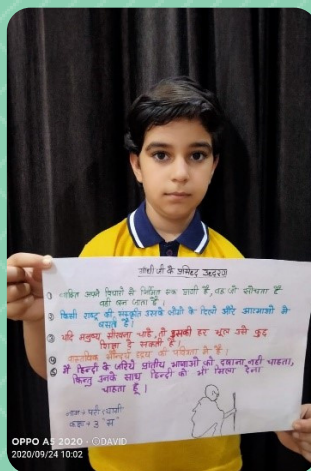 गाँधी जी के प्रसिद्ध उद्धरण
① व्यक्ति अपने विचारों से निर्मित एक प्राणी है, वह जो सोचता है
वही बन जाता है।
② किसी राष्ट्र की संस्कृति उसके लोगों के दिलों और आत्माओं में
बसती है।
③ यदि मनुष्य सीखना चाहे, तो उसकी हर भूल उसे कुछ
शिक्षा दे सकती है।
④ वास्तविक सौन्दर्य हृदय की पवित्रता में है।
⑤ मैं हिन्दी के जरिये प्रांतीय भाषाओं को दबाना नहीं चाहता,
किन्तु उनके साथ हिन्दी को भी मिला देना
चाहता हूँ।
नाम -
कक्षा - 3
OPPO AS 2020 · ©DAVID
2020/09/24 10:02